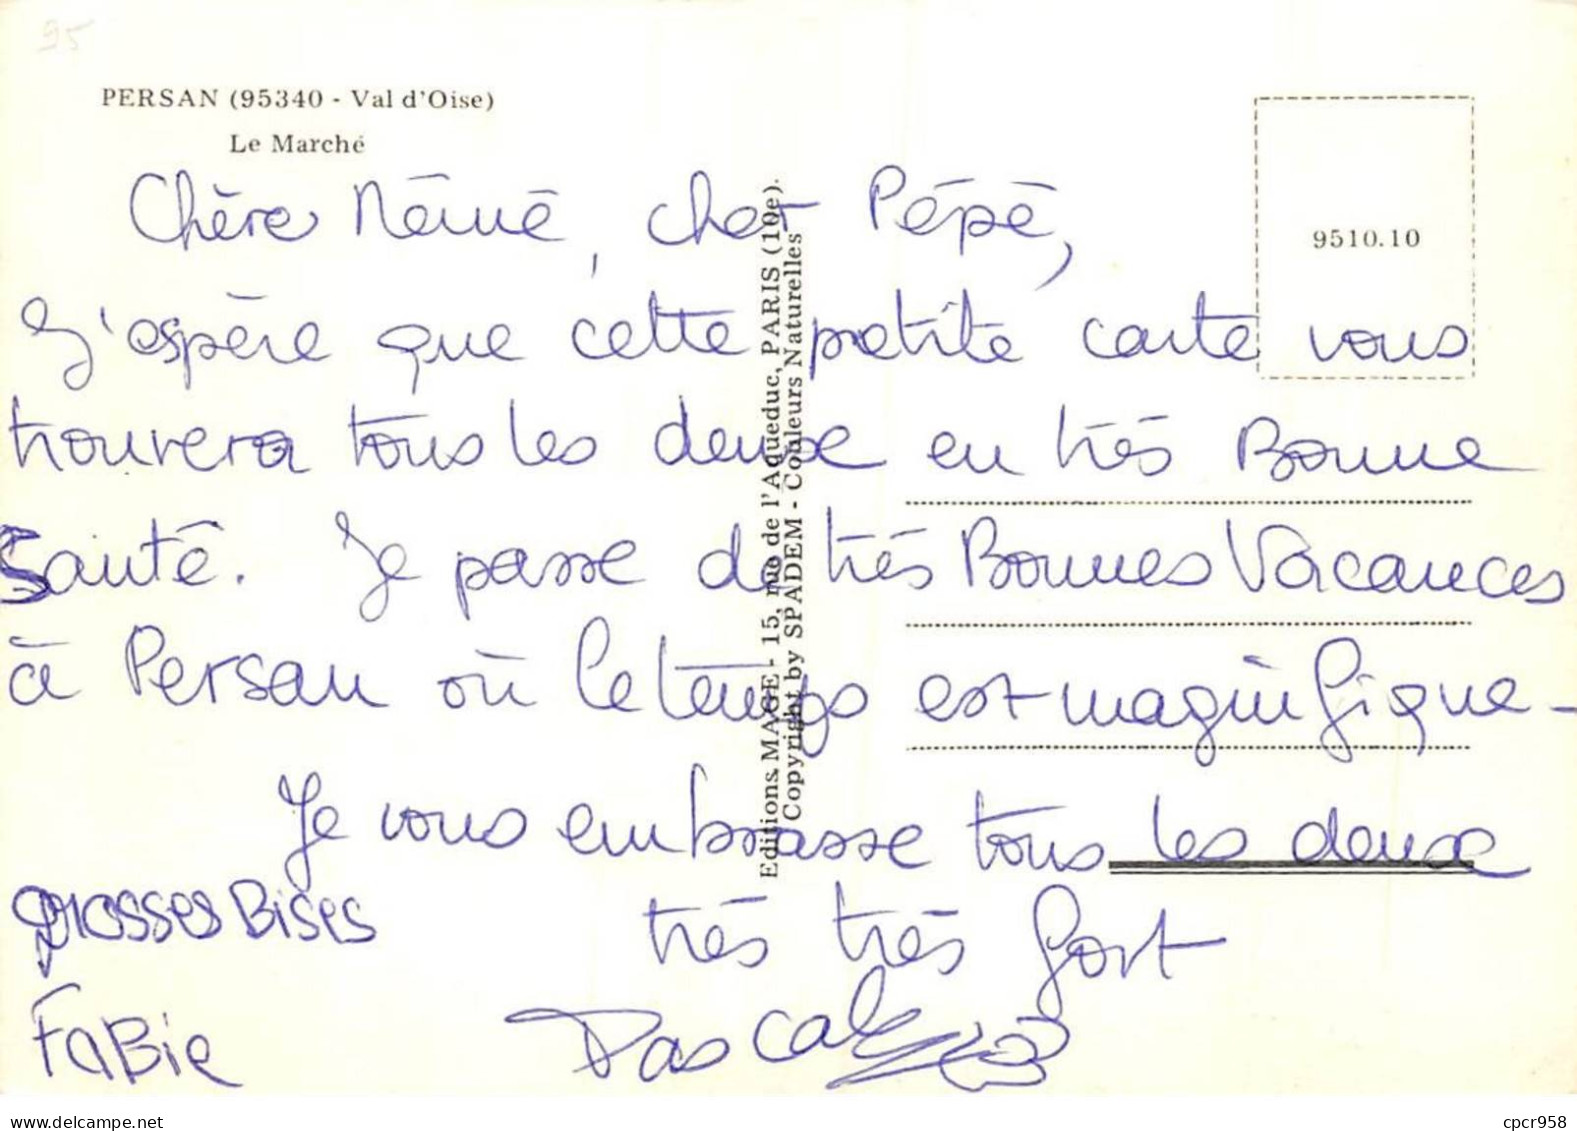 95
PERSAN (95340 - Val d'Oise)
Le Marché
9510.10
Editions MAGE - 15, rue de l'Aqueduc, PARIS (10e).
Copyright by SPADEM - Couleurs Naturelles
Chère Mémé, cher Pépé,
J'espère que cette petite carte vous
trouvera tous les deux en très Bonne
Santé. Je passe de très Bonnes Vacances
à Persan où le temps est magnifique -
Je vous embrasse tous les deux
très très fort
Pascal
grosses Bises
FaBie
delcampe.net
cpcr958